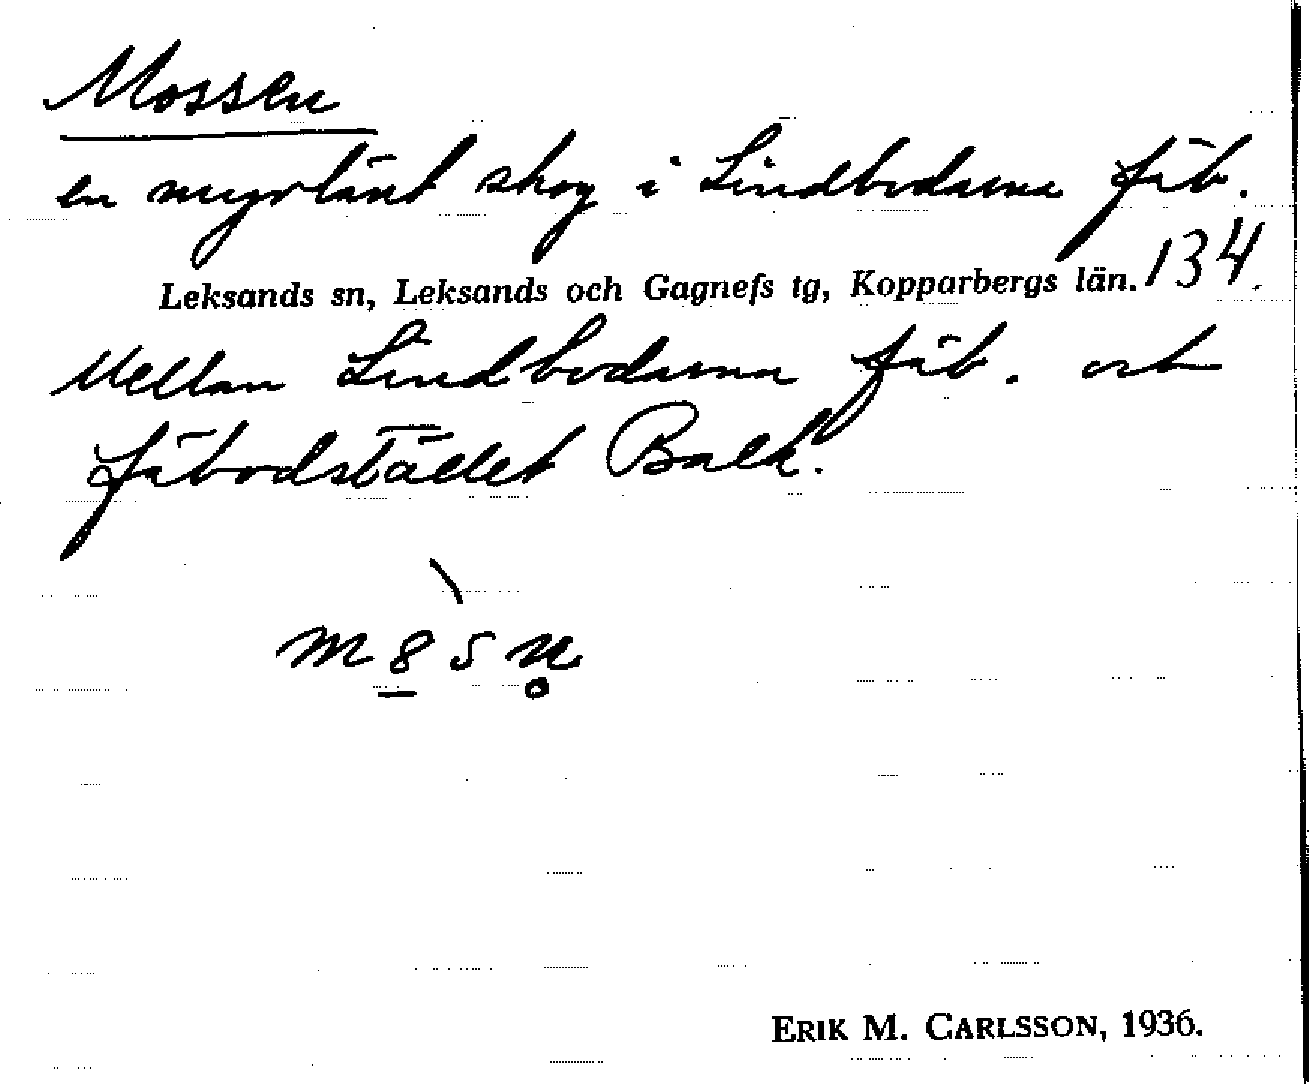 Mossen
en myrlänt skog i Lindbodarna fäb.
Leksands sn, Leksands och Gagnefs tg, Kopparbergs län. 134.
Mellan Lindbodarna fäb. och
fäbodstället Balk.
ERIK M. CARLSSON, 1936.